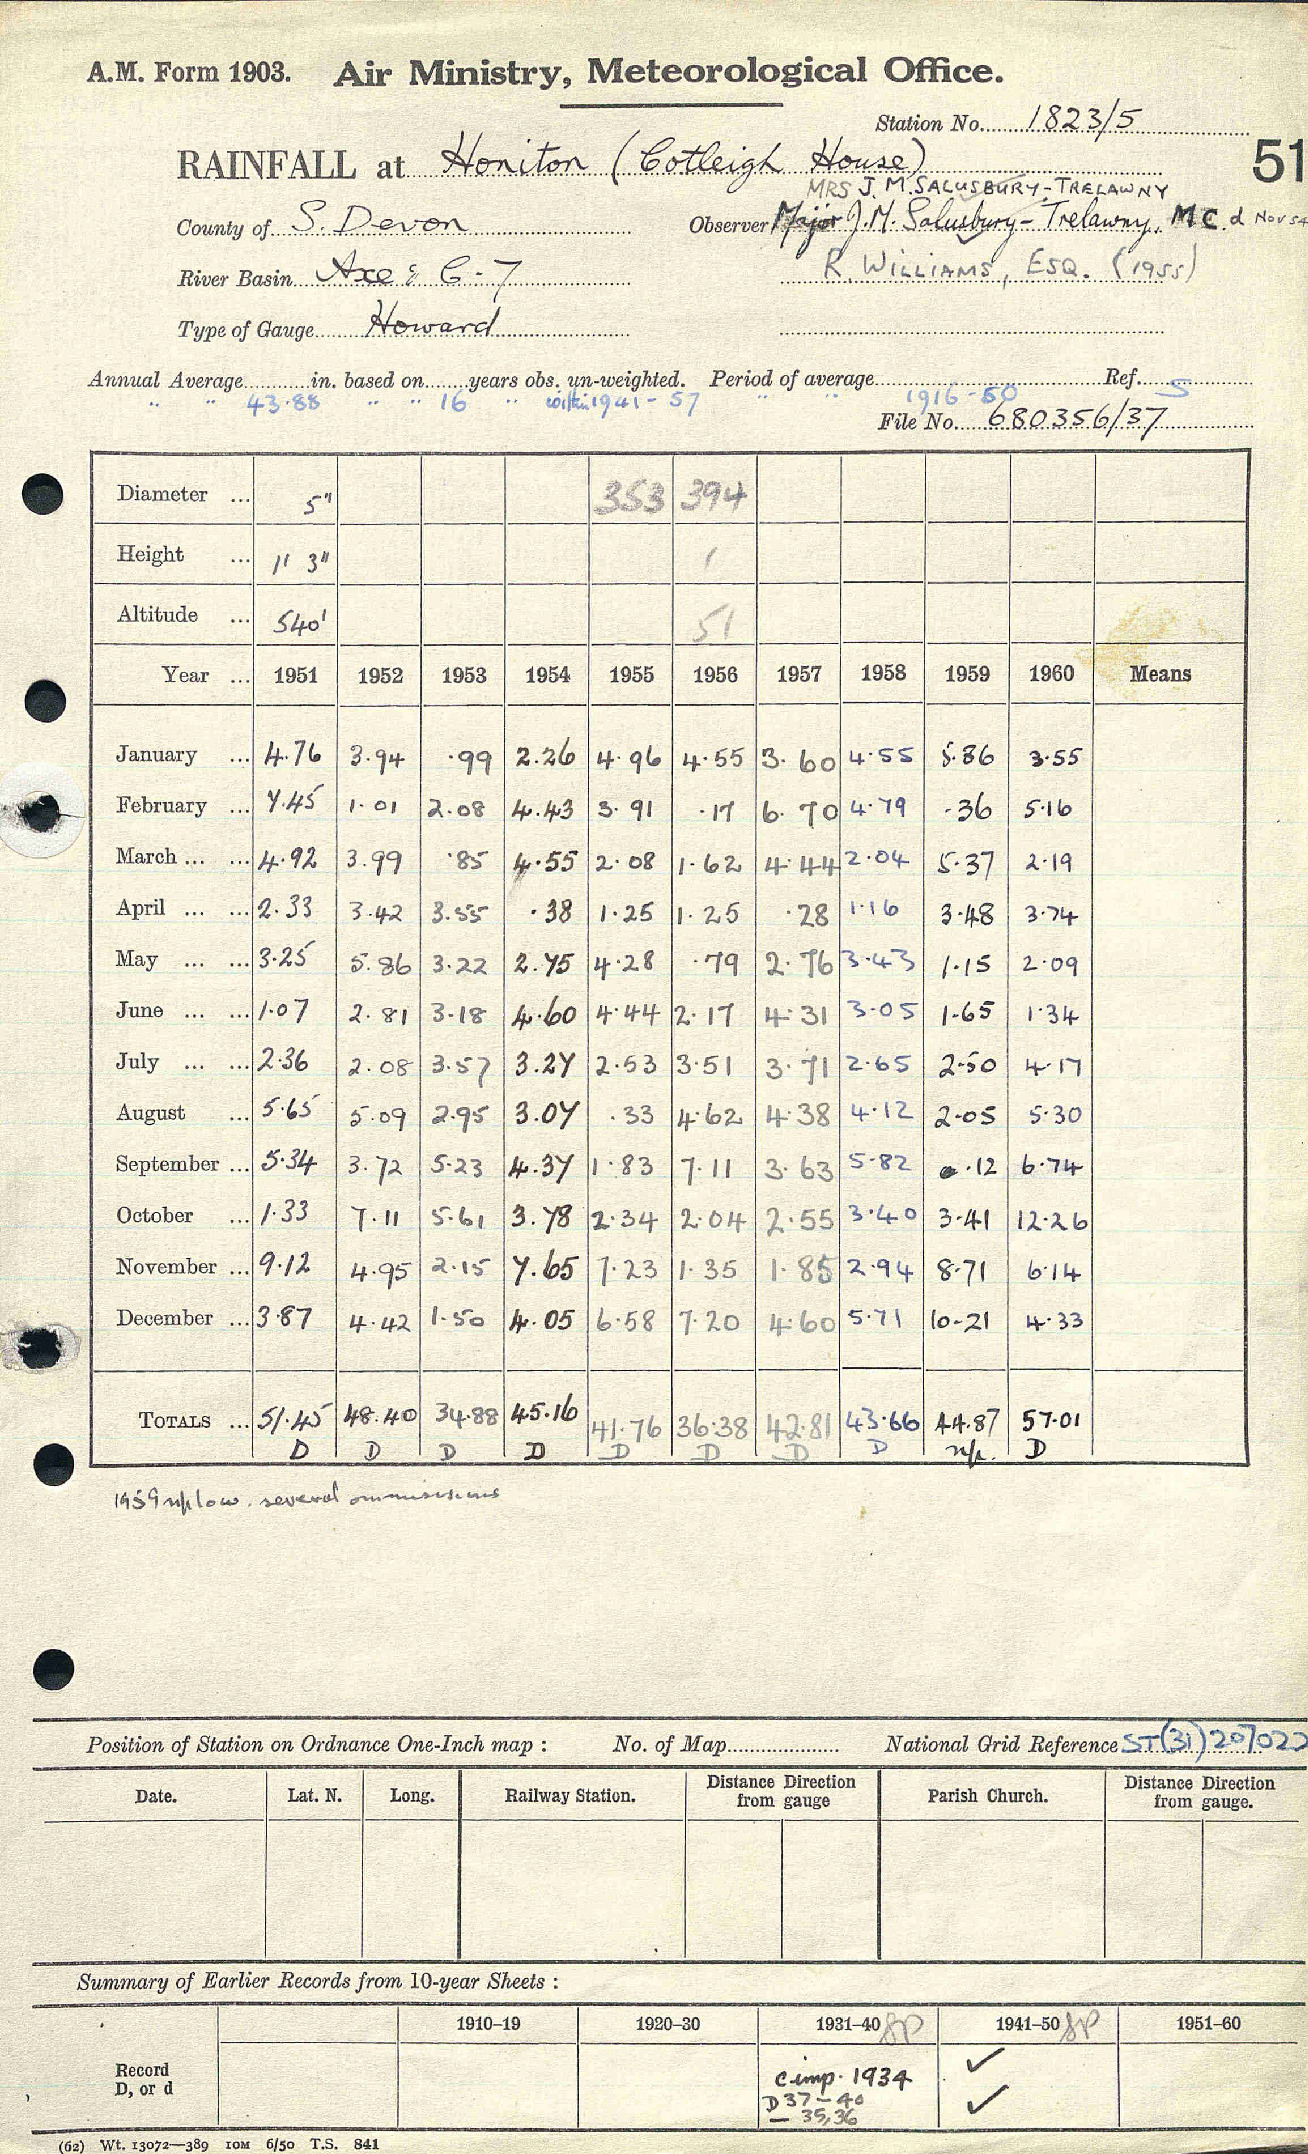 A.M. Form 1903. Air Ministry, Meteorological Office.
Station No. 1823/5
51
RAINFALL at Honiton (Cotleigh House)
MRS J.M. SALUSBURY-TRELAWNY
County of S. Devon
Observer Major J.M. Salusbury-Trelawny, MC. d Nov 54
River Basin Axe & C-7
R. WILLIAMS, ESQ. (1955)
Type of Gauge Howard
Annual Average in. based on years obs. un-weighted. Period of average Ref. S
" " 43.88 " " 16 " within 1941-57 " " 1916-50
File No. 680356/37
Diameter ... 5" 353 394
Height ... 1' 3" 1
Altitude ... 540' 51
Year ... 1951 1952 1953 1954 1955 1956 1957 1958 1959 1960 Means
January ... 4.76 3.94 .99 2.26 4.96 4.55 3.60 4.55 5.86 3.55
February ... 7.45 1.01 2.08 4.43 3.91 .17 6.70 4.79 .36 5.16
March ... ... 4.92 3.99 .85 4.55 2.08 1.62 4.44 2.04 5.37 2.19
April ... ... 2.33 3.42 3.55 .38 1.25 1.25 .28 1.16 3.48 3.74
May ... ... 3.25 5.86 3.22 2.75 4.28 .79 2.76 3.43 1.15 2.09
June ... ... 1.07 2.81 3.18 4.60 4.44 2.17 4.31 3.05 1.65 1.34
July ... ... 2.36 2.08 3.57 3.27 2.53 3.51 3.71 2.65 2.50 4.17
August ... 5.65 5.09 2.95 3.07 .33 4.62 4.38 4.12 2.05 5.30
September ... 5.34 3.72 5.23 4.37 1.83 7.11 3.63 5.82 .12 6.74
October ... 1.33 7.11 5.61 3.78 2.34 2.04 2.55 3.40 3.41 12.26
November ... 9.12 4.95 2.15 7.65 7.23 1.35 1.85 2.94 8.71 6.14
December ... 3.87 4.42 1.50 4.05 6.58 7.20 4.60 5.71 10.21 4.33
TOTALS ... 51.45 48.40 34.88 45.16 41.76 36.38 42.81 43.66 44.87 57.01
D D D D D D D D n/p. D
1959 n/p low. several ommissions
Position of Station on Ordnance One-Inch map : No. of Map National Grid Reference ST(31)207022
Date. Lat. N. Long. Railway Station. Distance Direction from gauge Parish Church. Distance Direction from gauge.
Summary of Earlier Records from 10-year Sheets :
1910–19 1920–30 1931–40 1941–50 1951–60
Record D, or d
c imp. 1934 ✓
D 37-40 ✓
— 35,36
(62) Wt. 13072—389 10M 6/50 T.S. 841